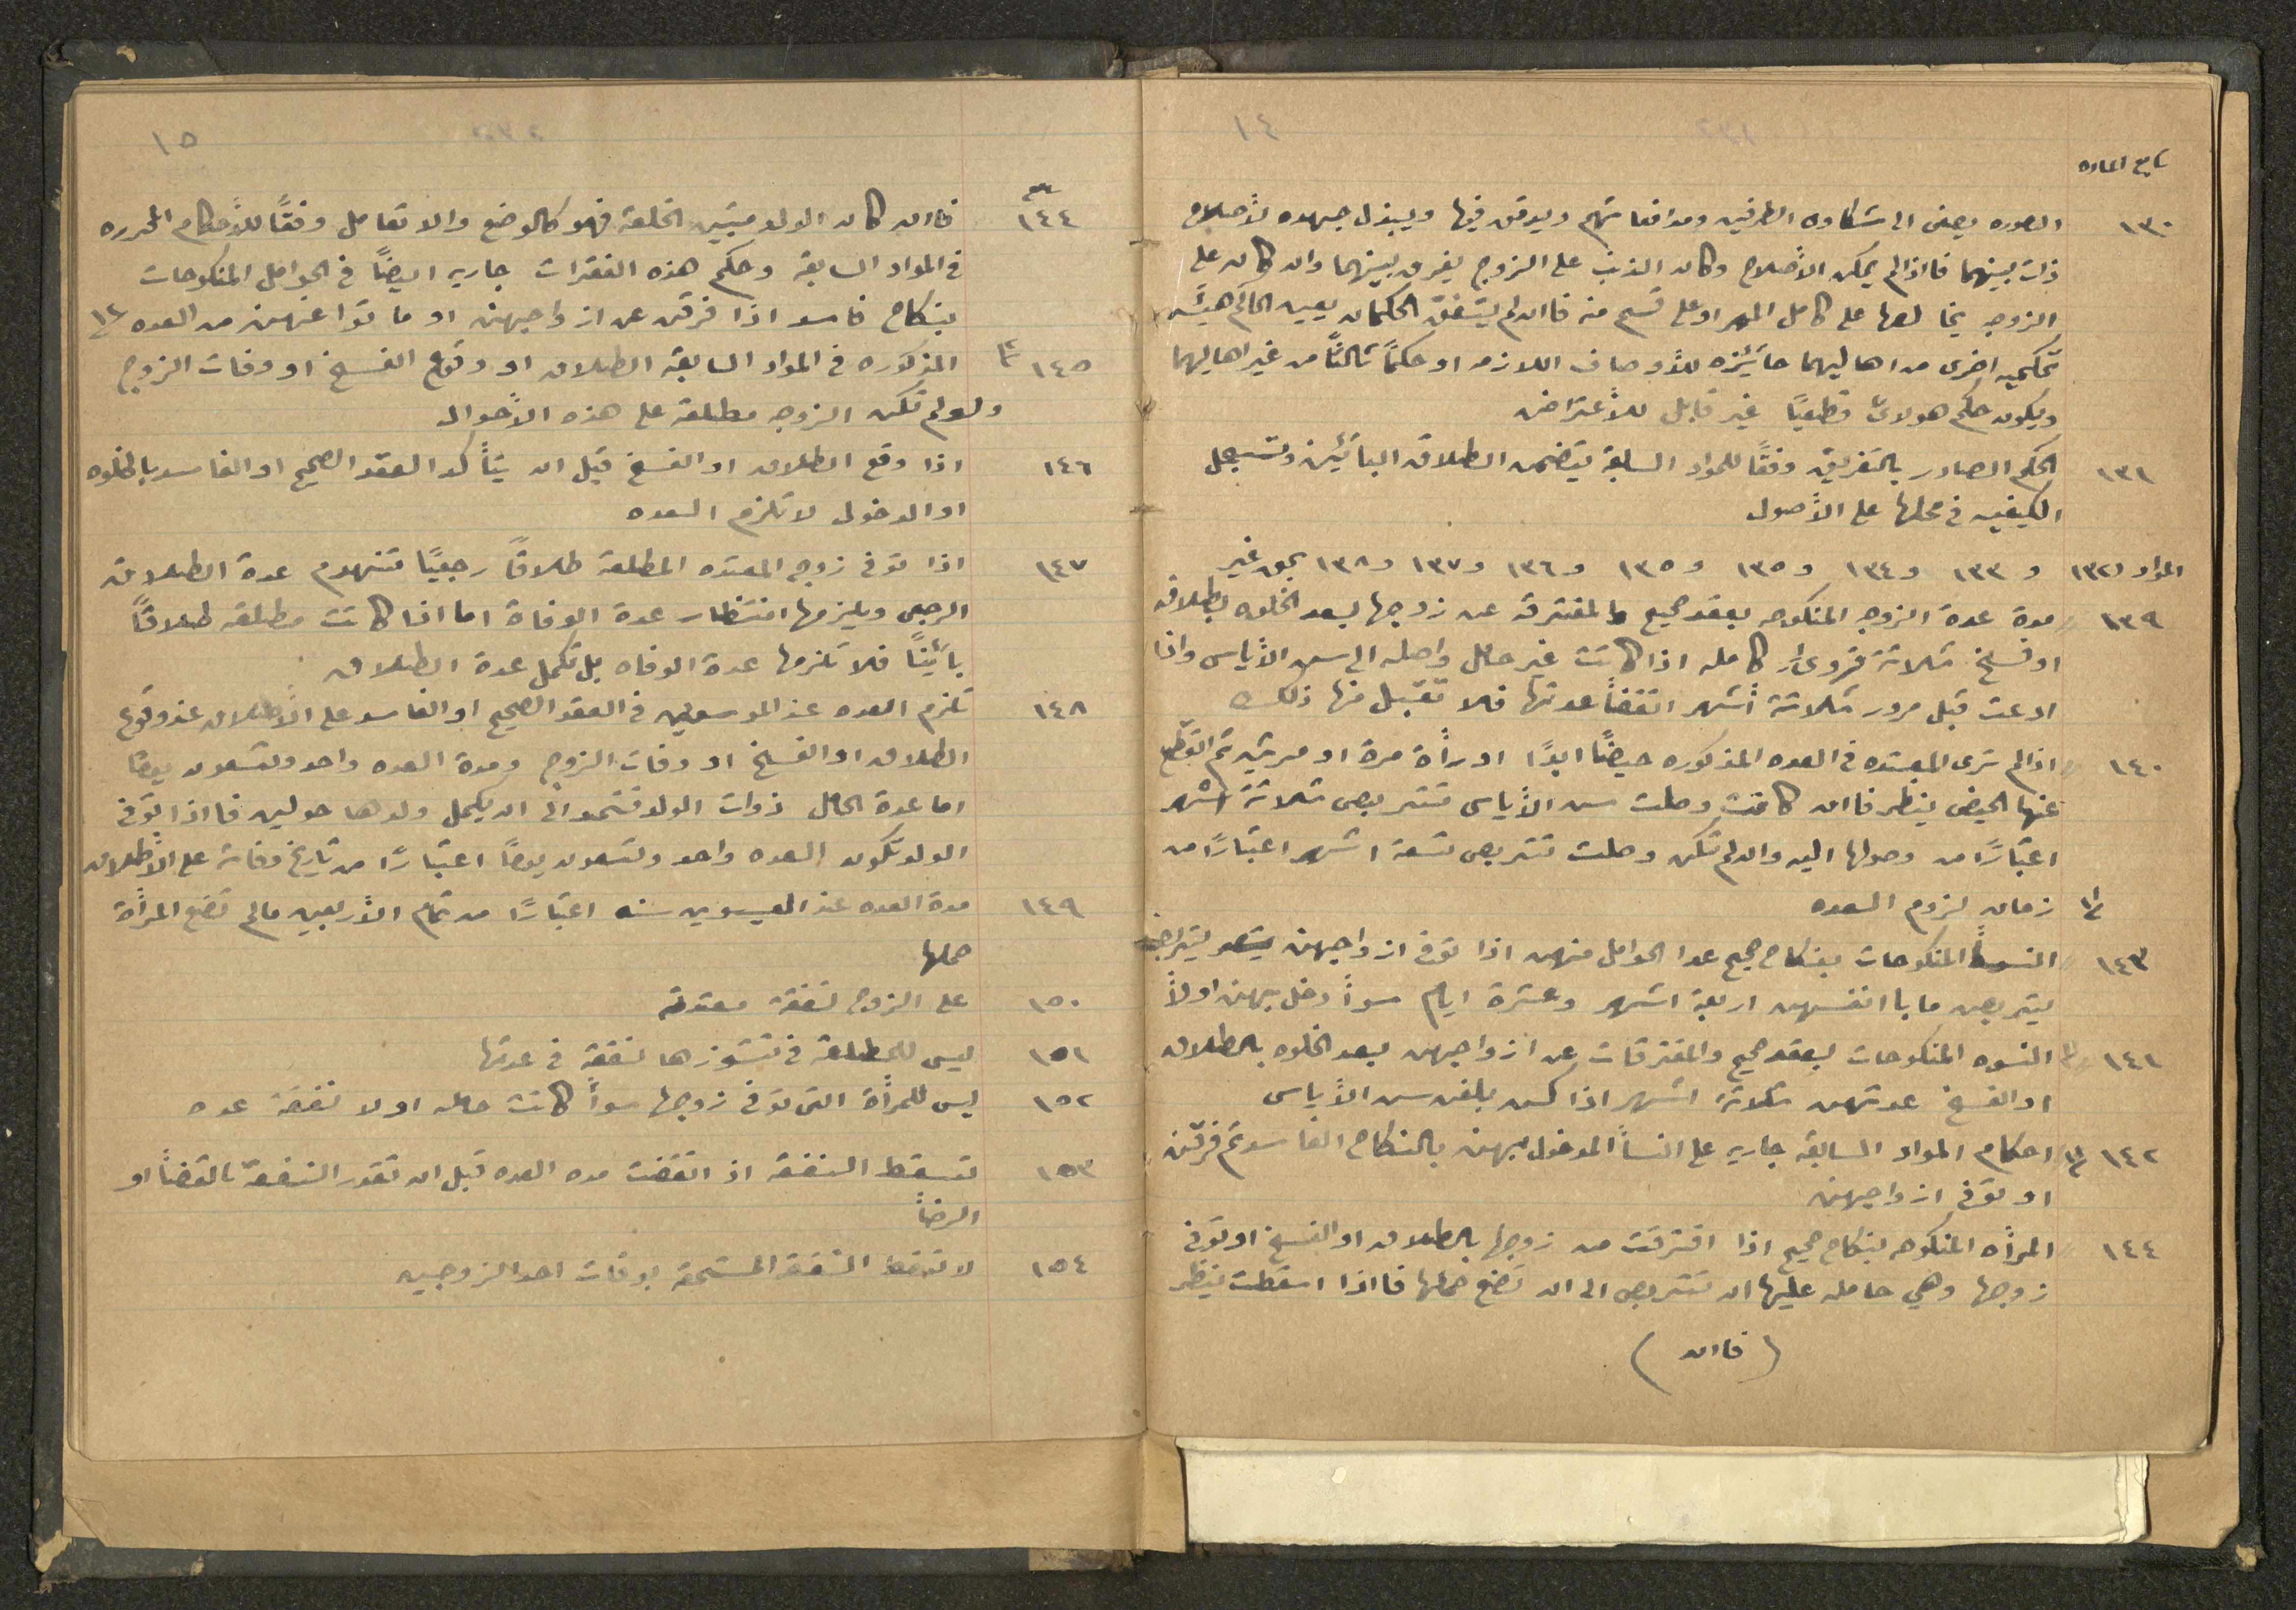 ١٤
تابع الماده
١٣٠ الصوره يصغى الى شكاوى الطرفين ومدافعاتهم ويدقق فيها ويبذل جهده لأصلاح
ذات بينهما فااذا لم يمكن الأصلاح وكان الذنب على الزوج يفرق بينهما وان كان على
الزوجه يخالعها على كامل المهر او على قسم منه فاان لم يتفق الحكمان يعين الحاكم هيئة
تحكميه اخرى من اهاليهما حائزه للأوصاف اللازمه او حكماً ثالثاً من غير اهاليهما
ويكون حكم هولائ قطعياً غير قابل للأعتراض
١٣١ الحكم الصادر بالتفريق وفقاً للمواد السابقة يتضمن الطلاق البائين وتسجل
الكيفيه في محلها على الأصول
المواد ١٣٢ و ١٣٣ و ١٣٤ و ١٣٥ و ١٣٦ و ١٣٧ و ١٣٨ بحق غير
١٣٩ مدة عدة الزوجه المنكوحه بعقد صحيح والمفترقه عن زوجها بعد الخلوه بطلاق
او فسخ ثلاثة قروئ كامله اذا كانت غير حامل واصله الى سن الأياس واذا
ادعت قبل مرور ثلاثة أشهر انقضأ عدتها فلا تقبل منها ذلك
١٤٠ اذا لم ترى المعتده في العده المذكوره حيضاً ابداً او رأة مرة او مرتين ثم انقطع
عنها الحيض ينظر فاان كانت وصلت سن الأياس تتربص ثلاثة اشهر
اعتباراً من وصولها اليه وان لم تكن وصلت تتربص تسعة اشهر اعتباراً من
زمان لزوم العده
١٤٣ النسوة المنكوحات بنكاح صحيح عدا الحوامل منهن اذا توفي ازواجهن
يتربصن ما باانفسهن اربعة اشهر وعشرة ايام سوأ دخل بهن اولاً
١٤١ النسوه المنكوحات بعقد صحيح والمفترقات عن ازواجهن بعد الخلوه بالطلاق
او الفسخ عدتهن ثلاثة اشهر اذا كن بلغن سن الأياس
١٤٢ احكام المواد السابقه جاريه على النسأ المدخول بهن بالنكاح الفاسد ثم فرقن
او توفي ازواجهن
١٤٤ المرأه المنكوحه بنكاح صحيح اذا افترقت من زوجها بالطلاق او الفسخ او توفي
زوجها وهي حامله عليها ان تتربص الى ان تضع حملها فااذا اسقطت ينظر
( فاان )
١٥
١٤٤ فاان كان الولد مستبين الخلقة فهو كالوضع والا تعامل وفقاً للأحكام المحرره
في المواد السابقه وحكم هذه الفقرات جاريه ايضاً في الحوامل المنكوحات
بنكاح فاسد اذا فرقن عن ازواجهن او ماتوا عنهن من العده
١٤٥ المذكوره في المواد السابقة الطلاق او وقوع الفسخ او وفات الزوج
ولو لم تكن الزوجه مطلعة على هذه الأحوال
١٤٦ اذا وقع الطلاق او الفسخ قبل ان يتأكد العقد الصحيح او الفاسد بالخلوه
او الدخول لا تلزم العده
١٤٧ اذا توفي زوج المعتده المطلقة طلاقاً رجعياً تنهدم عدة الطلاق
الرجعي ويلزمها انتظار عدة الوفاة اما اذا كانت مطلقه طلاقاً
بائيناً فلا تلزمها عدة الوفاه بل تكمل عدة الطلاق
١٤٨ تلزم العده عند الموسويين في العقد الصحيح او الفاسد على الأطلاق عند وقوع
الطلاق او الفسخ او وفات الزوج ومدة العده واحد وتسعون يوماً
اما عدة الحامل ذوات الولد فتمد الى ان يكمل ولدها حولين فااذا توفي
الولد تكون العده واحد وتسعون يوماً اعتباراً من تاريخ وفاته على الأطلاق
١٤٩ مدة العده عند العيسويين سنه اعتباراً من تمام الأربعين مالم تضع المرأة
حملها
١٥٠ على الزوج نفقة معتدته
١٥١ ليس للمطلقة في نشوزها نفقة في عدتها
١٥٢ ليس للمرأة التي توفي زوجها سوأ كانت حامله او لا نفقة عده
١٥٣ تسقط النفقه اذ انقضت مده العده قبل ان تقدر النفقة بالقضأ او
الرضأ
١٥٤ لا تسقط النفقة المستحقه بوفات احد الزوجين